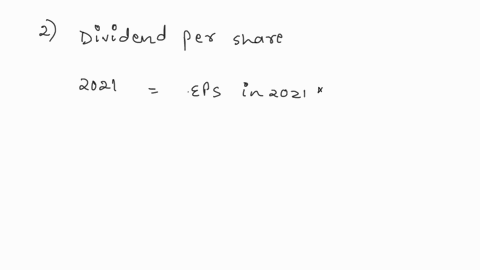 2) Dividend per share
2021 = EPS in 2021 *